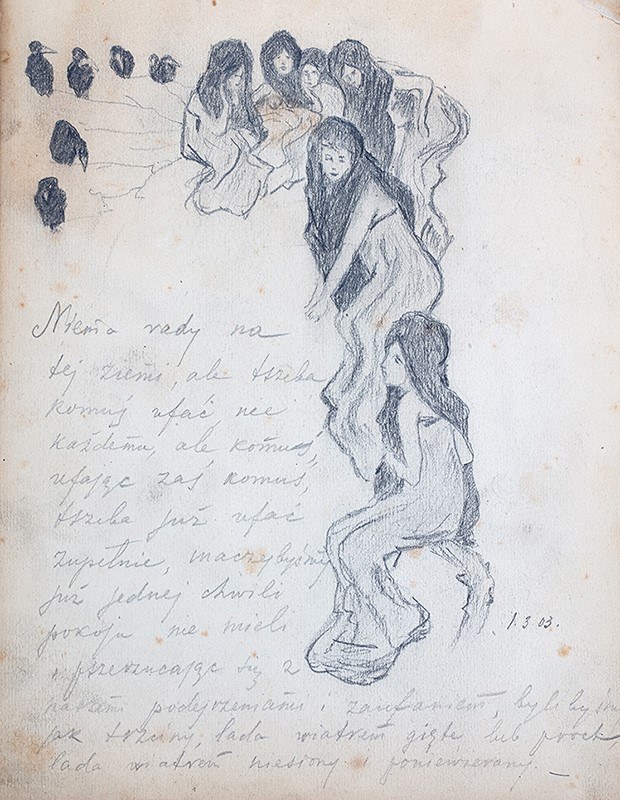 Niema rady na
tej ziemi, ale trzeba
komuś ufać nie
każdemu, ale komuś,
ufając zaś komuś,
trzeba już ufać
zupełnie, inaczejbyśmy
już jednej chwili
pokoju nie mieli
i przerzucając się z
naszemi podejrzeniami i zaufaniem, bylibyśm
jak trzciny, lada wiatrem gięte lub proch,
lada wiatrem niesiony i poniewierany. —
1.3 03.